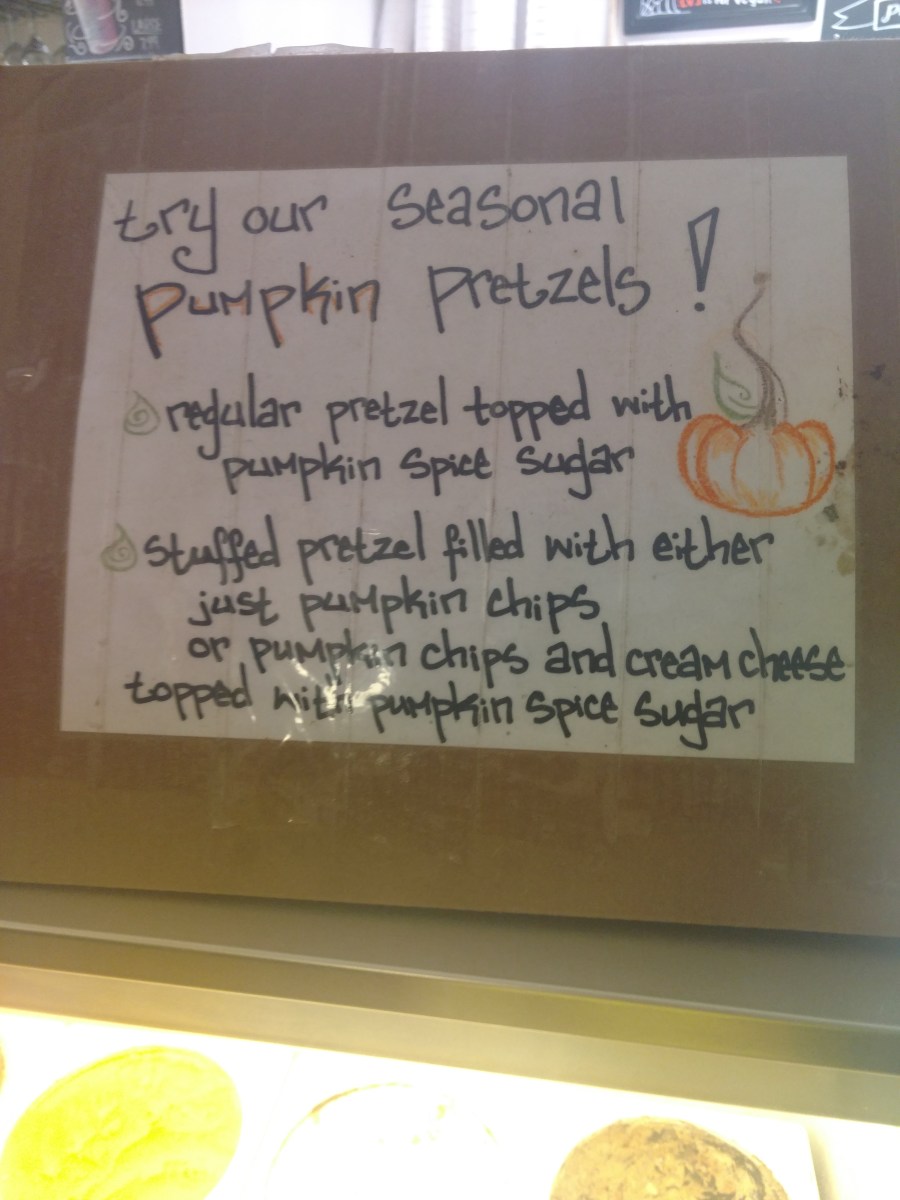 try our seasonal
pumpkin pretzels!
regular pretzel topped with
pumpkin spice sugar
stuffed pretzel filled with either
just pumpkin chips
or pumpkin chips and cream cheese
topped with pumpkin spice sugar